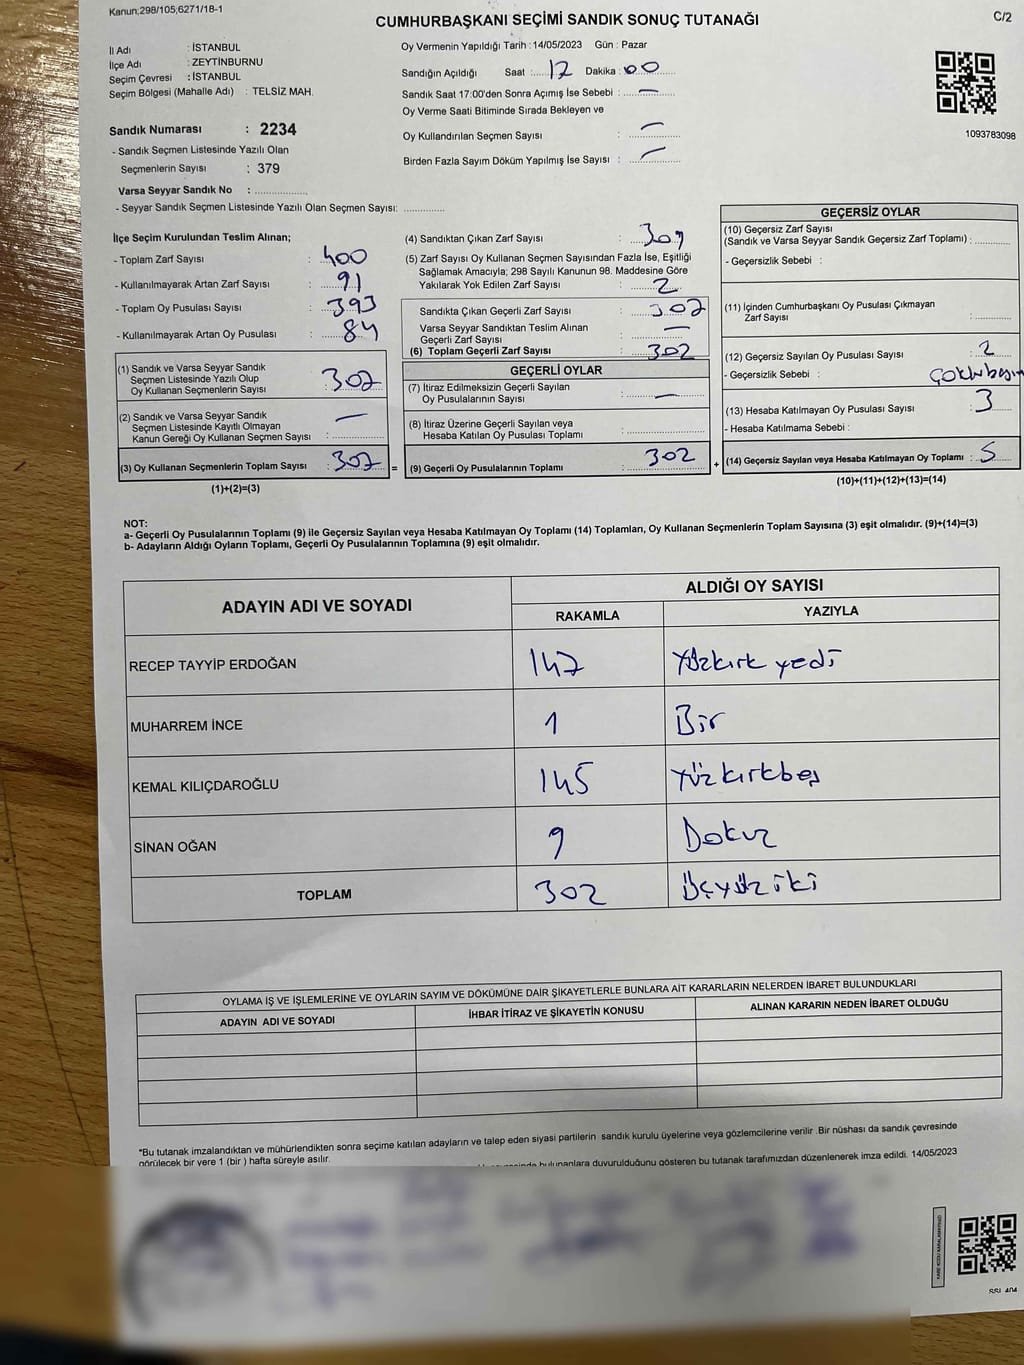 Kanun;298/105;6271/18-1
CUMHURBAŞKANI SEÇİMİ SANDIK SONUÇ TUTANAĞI
C/2
İl Adı : İSTANBUL
İlçe Adı : ZEYTİNBURNU
Seçim Çevresi : İSTANBUL
Seçim Bölgesi (Mahalle Adı) : TELSİZ MAH.
Sandık Numarası : 2234
- Sandık Seçmen Listesinde Yazılı Olan
Seçmenlerin Sayısı : 379
Varsa Seyyar Sandık No :
- Seyyar Sandık Seçmen Listesinde Yazılı Olan Seçmen Sayısı:
Oy Vermenin Yapıldığı Tarih : 14/05/2023 Gün : Pazar
Sandığın Açıldığı Saat : 17 Dakika : 00
Sandık Saat 17:00'den Sonra Açımış İse Sebebi : —
Oy Verme Saati Bitiminde Sırada Bekleyen ve
Oy Kullandırılan Seçmen Sayısı : —
Birden Fazla Sayım Döküm Yapılmış İse Sayısı : —
1093783098
İlçe Seçim Kurulundan Teslim Alınan;
- Toplam Zarf Sayısı : 400
- Kullanılmayarak Artan Zarf Sayısı : 91
- Toplam Oy Pusulası Sayısı : 393
- Kullanılmayarak Artan Oy Pusulası : 84
(1) Sandık ve Varsa Seyyar Sandık
Seçmen Listesinde Yazılı Olup
Oy Kullanan Seçmenlerin Sayısı : 307
(2) Sandık ve Varsa Seyyar Sandık
Seçmen Listesinde Kayıtlı Olmayan
Kanun Gereği Oy Kullanan Seçmen Sayısı : —
(3) Oy Kullanan Seçmenlerin Toplam Sayısı : 307 =
(1)+(2)=(3)
(4) Sandıktan Çıkan Zarf Sayısı : 309
(5) Zarf Sayısı Oy Kullanan Seçmen Sayısından Fazla İse, Eşitliği
Sağlamak Amacıyla; 298 Sayılı Kanunun 98. Maddesine Göre
Yakılarak Yok Edilen Zarf Sayısı : 2
Sandıkta Çıkan Geçerli Zarf Sayısı : 307
Varsa Seyyar Sandıktan Teslim Alınan
Geçerli Zarf Sayısı : —
(6) Toplam Geçerli Zarf Sayısı : 302
GEÇERLİ OYLAR
(7) İtiraz Edilmeksizin Geçerli Sayılan
Oy Pusulalarının Sayısı : —
(8) İtiraz Üzerine Geçerli Sayılan veya
Hesaba Katılan Oy Pusulası Toplamı :
(9) Geçerli Oy Pusulalarının Toplamı : 302 +
GEÇERSİZ OYLAR
(10) Geçersiz Zarf Sayısı
(Sandık ve Varsa Seyyar Sandık Geçersiz Zarf Toplamı) :
- Geçersizlik Sebebi :
(11) İçinden Cumhurbaşkanı Oy Pusulası Çıkmayan
Zarf Sayısı :
(12) Geçersiz Sayılan Oy Pusulası Sayısı : 2
- Geçersizlik Sebebi :
(13) Hesaba Katılmayan Oy Pusulası Sayısı : 3
- Hesaba Katılmama Sebebi :
(14) Geçersiz Sayılan veya Hesaba Katılmayan Oy Toplamı : 5
(10)+(11)+(12)+(13)=(14)
NOT:
a- Geçerli Oy Pusulalarının Toplamı (9) ile Geçersiz Sayılan veya Hesaba Katılmayan Oy Toplamı (14) Toplamları, Oy Kullanan Seçmenlerin Toplam Sayısına (3) eşit olmalıdır. (9)+(14)=(3)
b- Adayların Aldığı Oyların Toplamı, Geçerli Oy Pusulalarının Toplamına (9) eşit olmalıdır.
ADAYIN ADI VE SOYADI
ALDIĞI OY SAYISI
RAKAMLA YAZIYLA
RECEP TAYYİP ERDOĞAN 147 Yüzkırk yedi
MUHARREM İNCE 1 Bir
KEMAL KILIÇDAROĞLU 145 Yüzkırkbeş
SİNAN OĞAN 9 Dokuz
TOPLAM 302 Üçyüz iki
OYLAMA İŞ VE İŞLEMLERİNE VE OYLARIN SAYIM VE DÖKÜMÜNE DAİR ŞİKAYETLERLE BUNLARA AİT KARARLARIN NELERDEN İBARET BULUNDUKLARI
ADAYIN ADI VE SOYADI İHBAR İTİRAZ VE ŞİKAYETİN KONUSU ALINAN KARARIN NEDEN İBARET OLDUĞU
*Bu tutanak imzalandıktan ve mühürlendikten sonra seçime katılan adayların ve talep eden siyasi partilerin sandık kurulu üyelerine veya gözlemcilerine verilir .Bir nüshası da sandık çevresinde
görülecek bir yere 1 (bir ) hafta süreyle asılır.
bulunanlara duyurulduğunu gösteren bu tutanak tarafımızdan düzenlenerek imza edildi. 14/05/2023